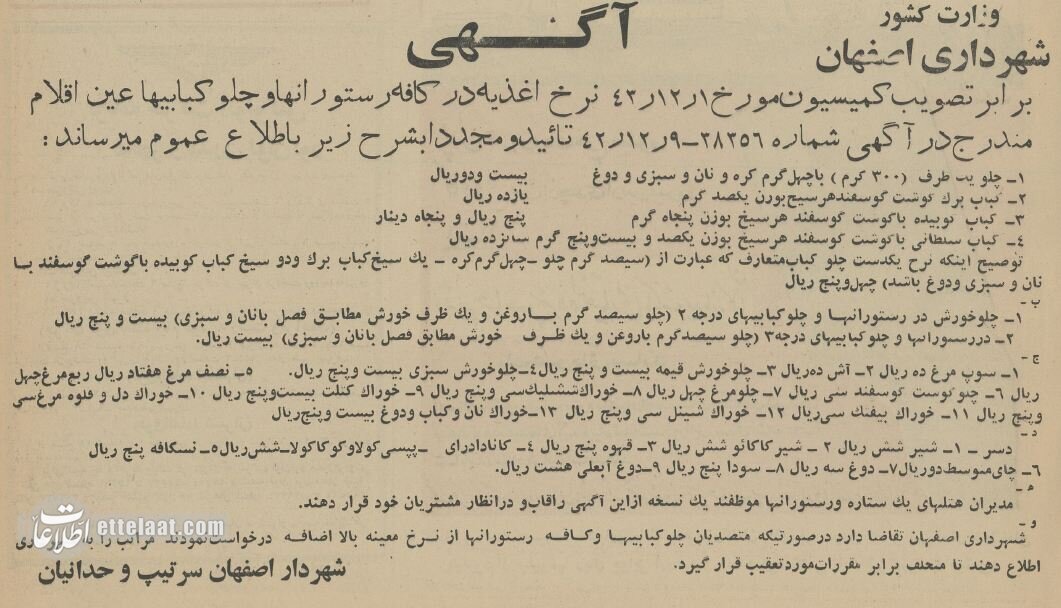 وزارت کشور
شهرداری اصفهان
آگهی
برابر تصویب کمیسیون مورخ ۴۳٫۱۲٫۱ نرخ اغذیه در کافه رستورانها و چلوکبابیها عین اقلام
مندرج در آگهی شماره ۳۸۳۵۶ـ۴۲٫۱۲٫۹ تائید و مجددا بشرح زیر باطلاع عموم میرساند :
۱ـ چلو یک ظرف (۳۰۰ گرم ) با چهل گرم کره و نان و سبزی و دوغ بیست و دو ریال
۲ـ کباب برگ گوشت گوسفند هر سیخ بوزن یکصد گرم یازده ریال
۳ـ کباب کوبیده با گوشت گوسفند هر سیخ بوزن پنجاه گرم پنج ریال و پنجاه دینار
۴ـ کباب سلطانی با گوشت گوسفند هر سیخ بوزن یکصد و بیست و پنج گرم شانزده ریال
توضیح اینکه نرخ یکدست چلو کباب متعارف که عبارت از (سیصد گرم چلو ـ چهل گرم کره ـ یک سیخ کباب برگ و دو سیخ کباب کوبیده با گوشت گوسفند با
نان و سبزی و دوغ باشد) چهل و پنج ریال
ب ـ
۱ـ چلو خورش در رستورانها و چلوکبابیهای درجه ۲ (چلو سیصد گرم با روغن و یک ظرف خورش مطابق فصل با نان و سبزی) بیست و پنج ریال
۲ـ در رستورانها و چلوکبابیهای درجه ۳ (چلو سیصد گرم با روغن و یک ظرف خورش مطابق فصل با نان و سبزی) بیست ریال.
ج ـ
۱ـ سوپ مرغ ده ریال ۲ـ آش ده ریال ۳ـ چلو خورش قیمه بیست و پنج ریال ۴ـ چلو خورش سبزی بیست و پنج ریال. ۵ـ نصف مرغ هفتاد ریال ربع مرغ چهل
ریال ۶ـ چلو گوشت گوسفند سی ریال ۷ـ چلو مرغ چهل ریال ۸ـ خوراک ششلیک سی و پنج ریال ۹ـ خوراک کتلت بیست و پنج ریال ۱۰ـ خوراک دل و قلوه مرغ سی
و پنج ریال ۱۱ـ خوراک بیفتک سی ریال ۱۲ـ خوراک شینل سی و پنج ریال ۱۳ـ خوراک نان و کباب و دوغ بیست و پنج ریال
د ـ
دسر ـ ۱ـ شیر شش ریال ۲ ـ شیر کاکائو شش ریال ۳ـ قهوه پنج ریال ۴ـ کانادا درای ـ پپسی کولا و کوکا کولا ـ شش ریال ۵ـ نسکافه پنج ریال
۶ـ چای متوسط دو ریال ۷ـ دوغ سه ریال ۸ـ سودا پنج ریال ۹ـ دوغ آبعلی هشت ریال.
ه ـ
مدیران هتلهای یک ستاره و رستورانها موظفند یک نسخه از این آگهی را قاب و در انظار مشتریان خود قرار دهند.
و ـ
شهرداری اصفهان تقاضا دارد در صورتیکه متصدیان چلوکبابیها و کافه رستورانها از نرخ معینه بالا اضافه درخواست نمودند مراتب را
اطلاع دهند تا متخلف برابر مقررات مورد تعقیب قرار گیرد.
شهردار اصفهان سرتیپ وحدانیان
اطلاعات ettelaat.com